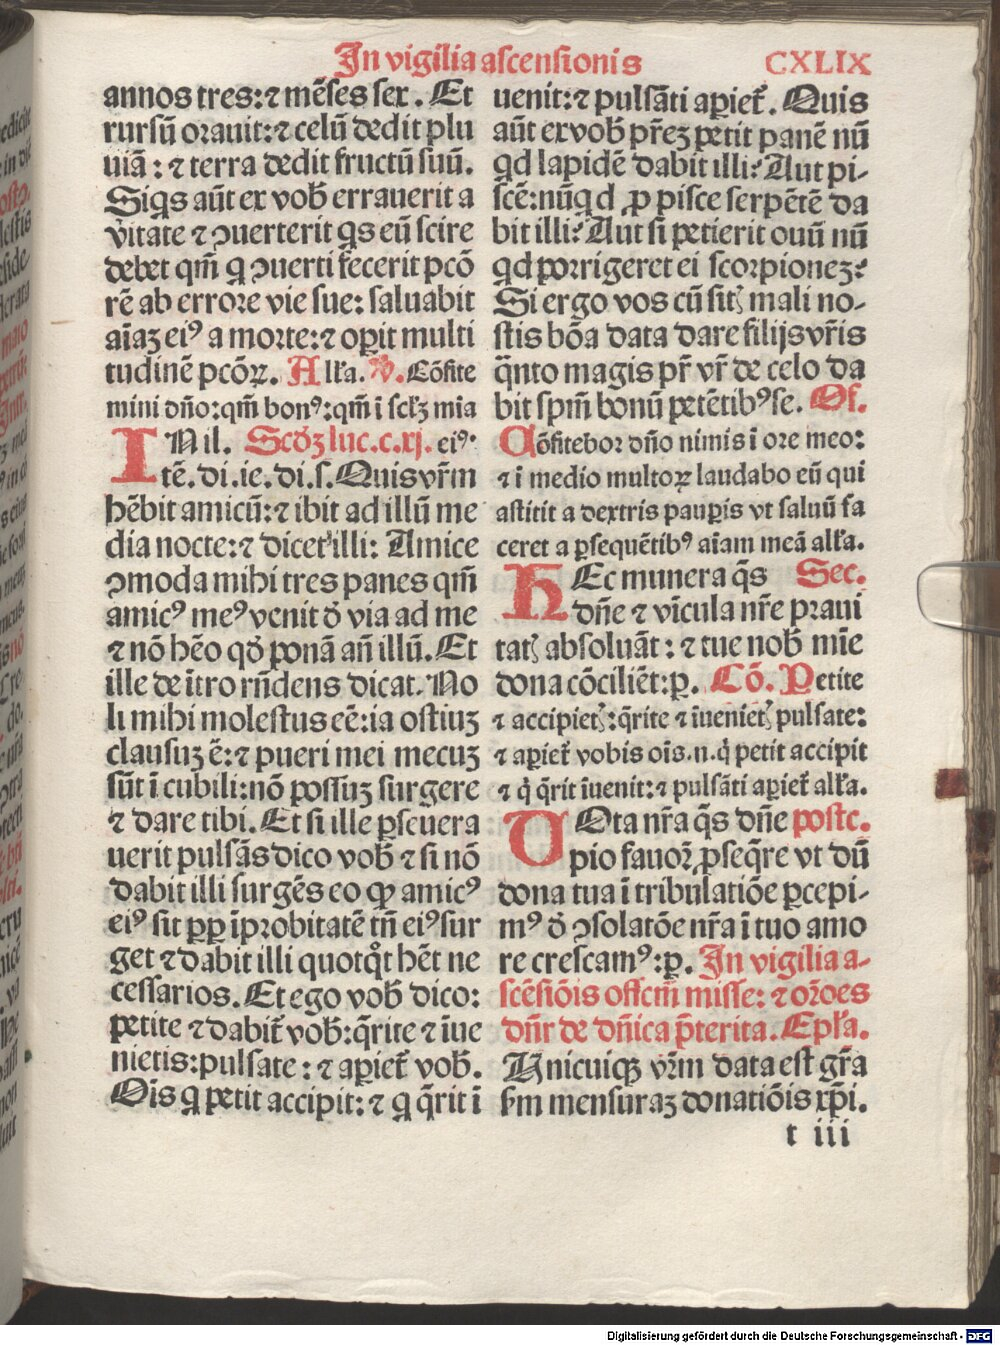 In vigilia ascensionis CXLIX
annos tres: ⁊ mēses sex. Et
rursū orauit: ⁊ celū dedit plu
uiā: ⁊ terra dedit fructū suū.
Siqs aūt ex vob̄ errauerit a
v̄itate ⁊ ꝯuerterit qs eū scire
debet qm̄ q ꝯuerti fecerit pcō
rē ab errore vie sue: saluabit
aīaꝫ eiꝰ a morte: ⁊ opit multi
tudinē pcōꝝ. All'a. V. Cōfite
mini dño: qm̄ bonꝰ: qm̄ ī sclꝫ mia
INil. Scd̄ꝫ luc. c. xj. eiꝰ.
tē. di. ie. di. s. Quis vr̄m
hēbit amicū: ⁊ ibit ad illū me
dia nocte: ⁊ dicet' illi: Amice
ꝯmoda mihi tres panes qm̄
amicꝰ meꝰ venit d̄ via ad me
⁊ nō hēo qd̄ ponā añ illū. Et
ille de ītro rn̄dens dicat. No
li mihi molestus eē: ia ostiuꝫ
clausuꝫ ē: ⁊ pueri mei mecuꝫ
sūt ī cubili: nō possuꝫ surgere
⁊ dare tibi. Et si ille ꝑseuera
uerit pulsās dico vob̄ ⁊ si nō
dabit illi surgēs eo ꝙ amicꝰ
eiꝰ sit ꝓꝑ īprobitatē tn̄ eiꝰ sur
get ⁊ dabit illi quotqͦt hēt ne
cessarios. Et ego vob̄ dico:
petite ⁊ dabit̄ vob̄: q̄rite ⁊ īue
nietis: pulsate: ⁊ apiet̄ vob̄.
Oīs q petit accipit: ⁊ q q̄rit ī
uenit: ⁊ pulsāti apiet̄. Quis
aūt ex vob̄ pr̄eꝫ petit panē nū
qd lapidē dabit illi? Aut pi-
scē: nūqd ꝓ pisce serpētē da
bit illi? Aut si petierit ouū nū
qd porriget ei scorpioneꝫ?
Si ergo vos cū sitꝭ mali no-
stis bōa data dare filijs vr̄is
q̄nto magis pr̄ vr̄ de celo da
bit spm̄ bonū petētibꝰ se. Of.
Cōfitebor dño nimis ī ore meo:
⁊ ī medio multoꝝ laudabo eū qui
astitit a dextris paupis vt saluū fa
ceret a ꝑsequētibꝰ aīam meā all'a.
HEc munera q̄s Sec.
dñe ⁊ vīcula nr̄e praui
tatꝭ absoluāt: ⁊ tue nob̄ mīe
dona cōciliēt: ꝑ. Cō. Petite
⁊ accipietꝭ: q̄rite ⁊ īuenietꝭ pulsate:
⁊ apiet̄ vobis oīs. n. q̇ petit accipit
⁊ q̇ q̄rit īuenit: ⁊ pulsāti apiet̄ all'a.
VOta nr̄a q̄s dñe postc.
pio fauoꝝ ꝓseq̄re vt dū
dona tua ī tribulatiōe ꝑcepi-
mꝰ d̄ ꝯsolatōe nr̄a ī tuo amo
re crescamꝰ: ꝑ. In vigilia a-
scēsiōis offcm̄ misse: ⁊ or̄oes
dn̄r de dn̄ica p̄terita. Epl'a.
Vnicuiqꝫ vr̄m data est gr̄a
ẜm mensuraꝫ donatiōis xp̄i.
t iii
Digitalisierung gefördert durch die Deutsche Forschungsgemeinschaft - DFG